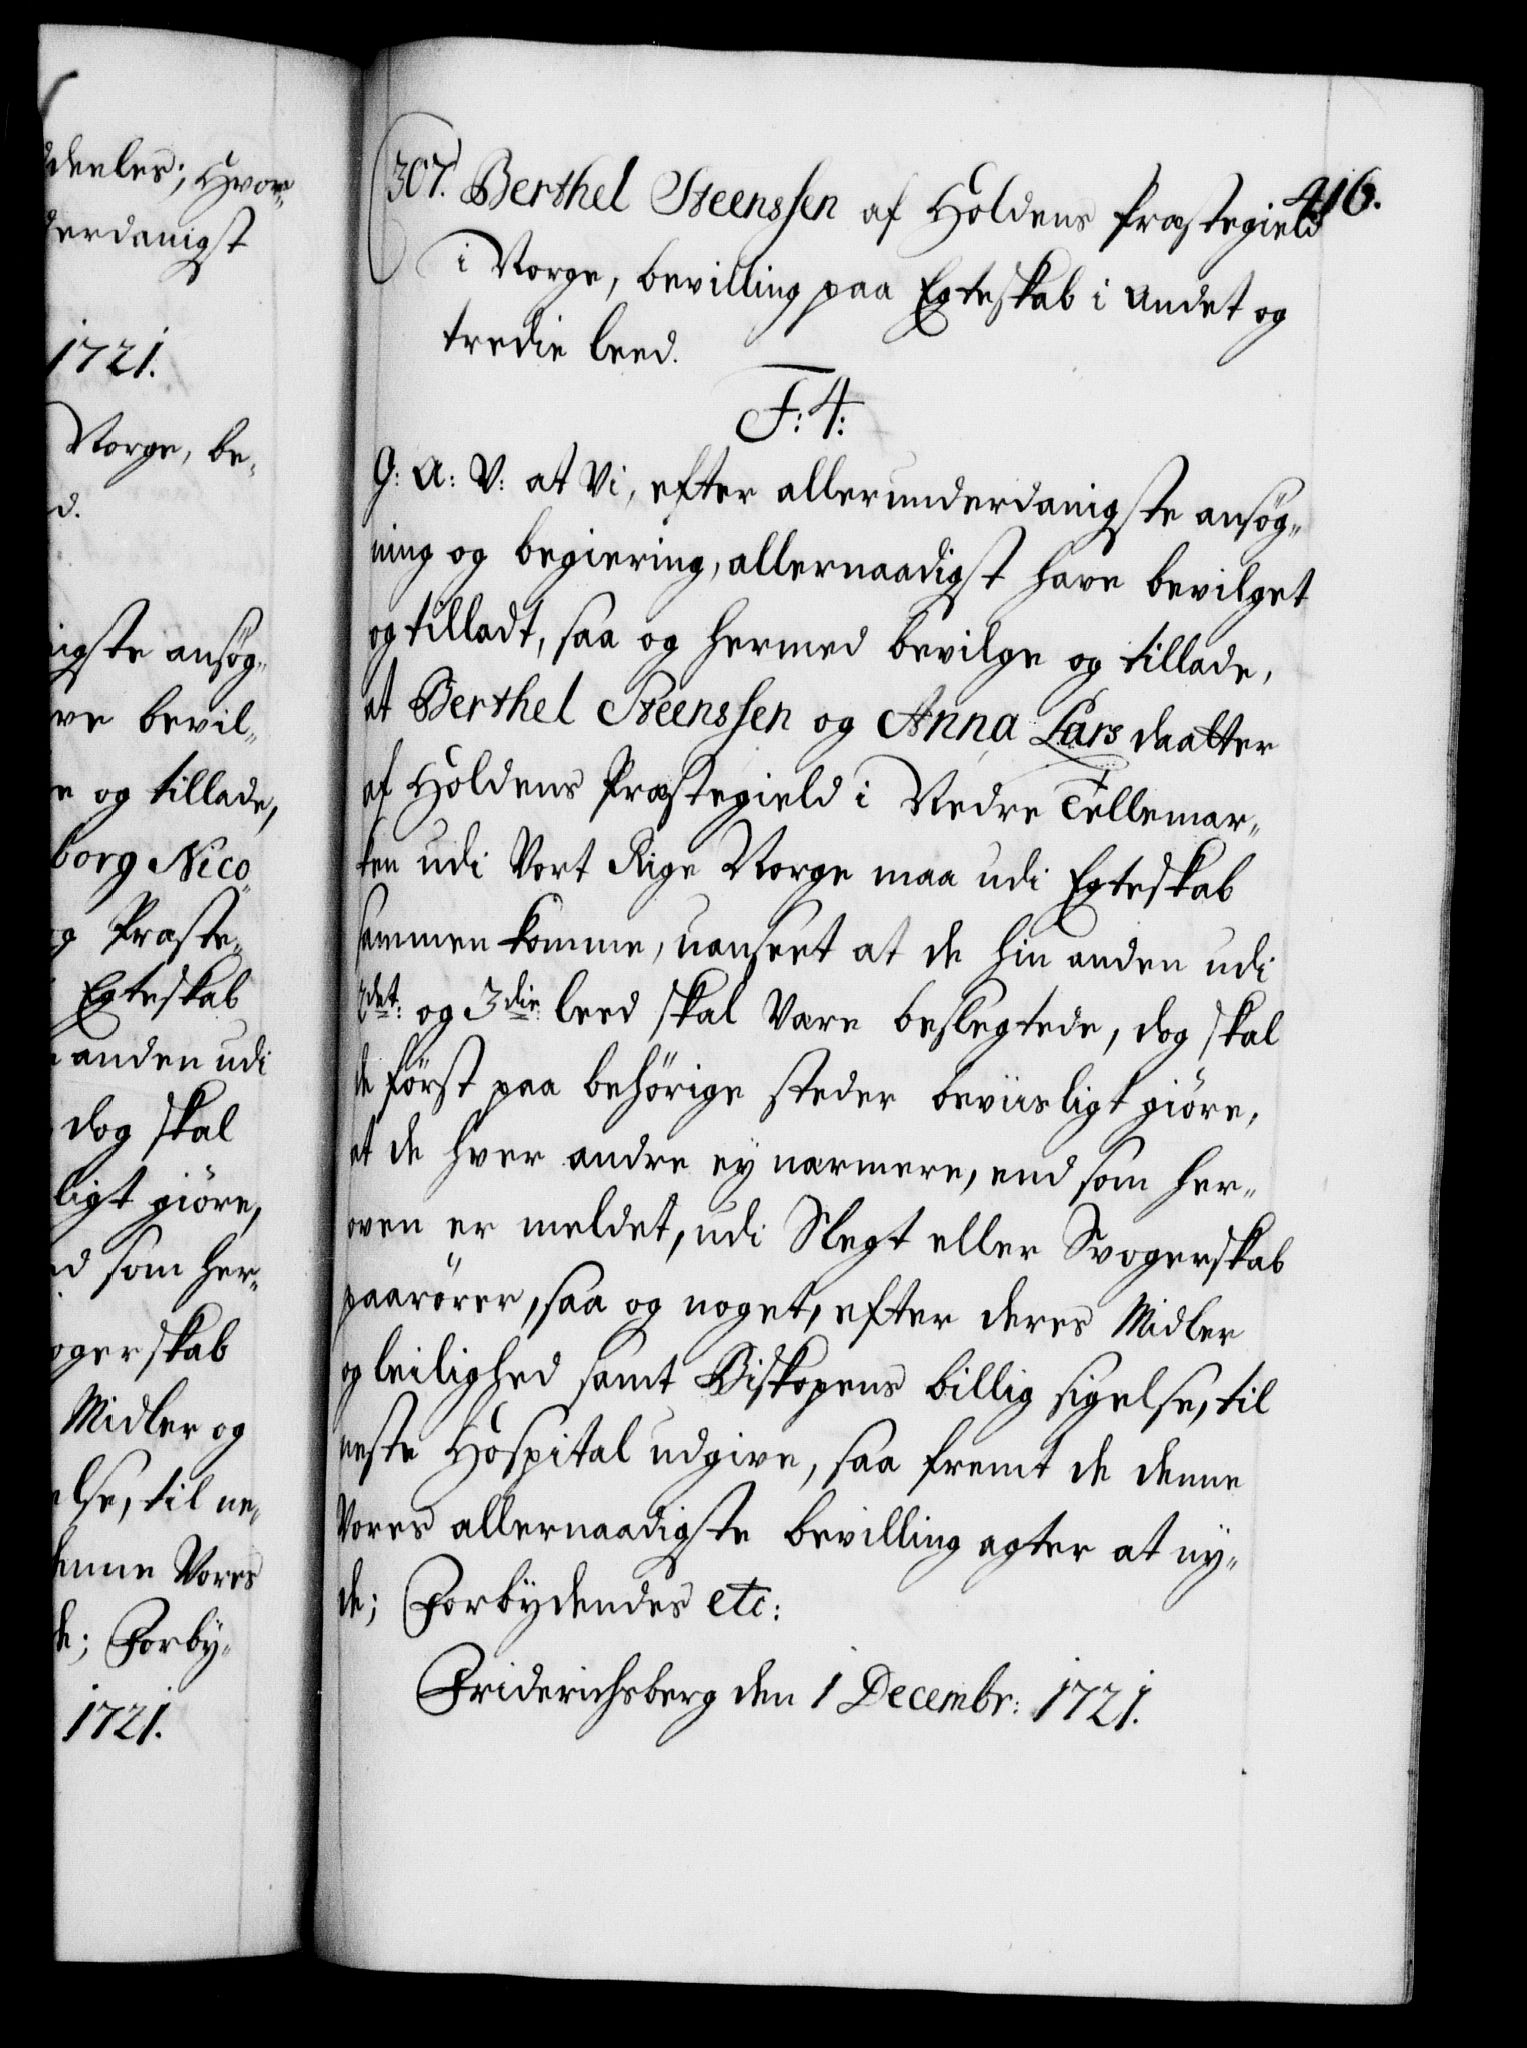 deeles; Hvor-
derdanigst
1721.
Norge, be-
d.
igste ansøg-
ve bevil-
e og tillade,
borg Nico-
og Præste-
Egteskab
anden udi
dog skal
ligt giøre,
d som her-
ogerskab
Midler og
else, til ne-
denne Vores
de; Forby-
1721.
416.
307. Berthel Steenssen af Holdens Præstegield
i Norge, bevilling paa Egteskab i Andet og
tredie leed.
F: 4:
G: A: V: at Vi, efter allerunderdanigste ansøg-
ning og begiering, allernaadigst have bevilget
og tilladt, saa og hermed bevilge og tillade,
at Berthel Steenssen og Anna Lars daatter
af Holdens Præstegield i Nedre Tellemar-
ken udi Vort Rige Norge maa udi Egteskab
sammen komme, uanseet at de hin anden udi
2det: og 3die leed skal være beslegtede, dog skal
de först paa behörige steder beviisligt giöre,
at de hver andre ey nærmere, end som her-
oven er meldet, udi Slegt eller Svogerskab
paarörer, saa og noget, efter deres Midler
og leilighed samt Biskopens billig sigelse, til
neste Hospital udgive, saa fremt de denne
Vores allernaadigste bevilling agter at ny-
de; Forbydendes etc:
Friderichsberg den 1 Decembr: 1721.